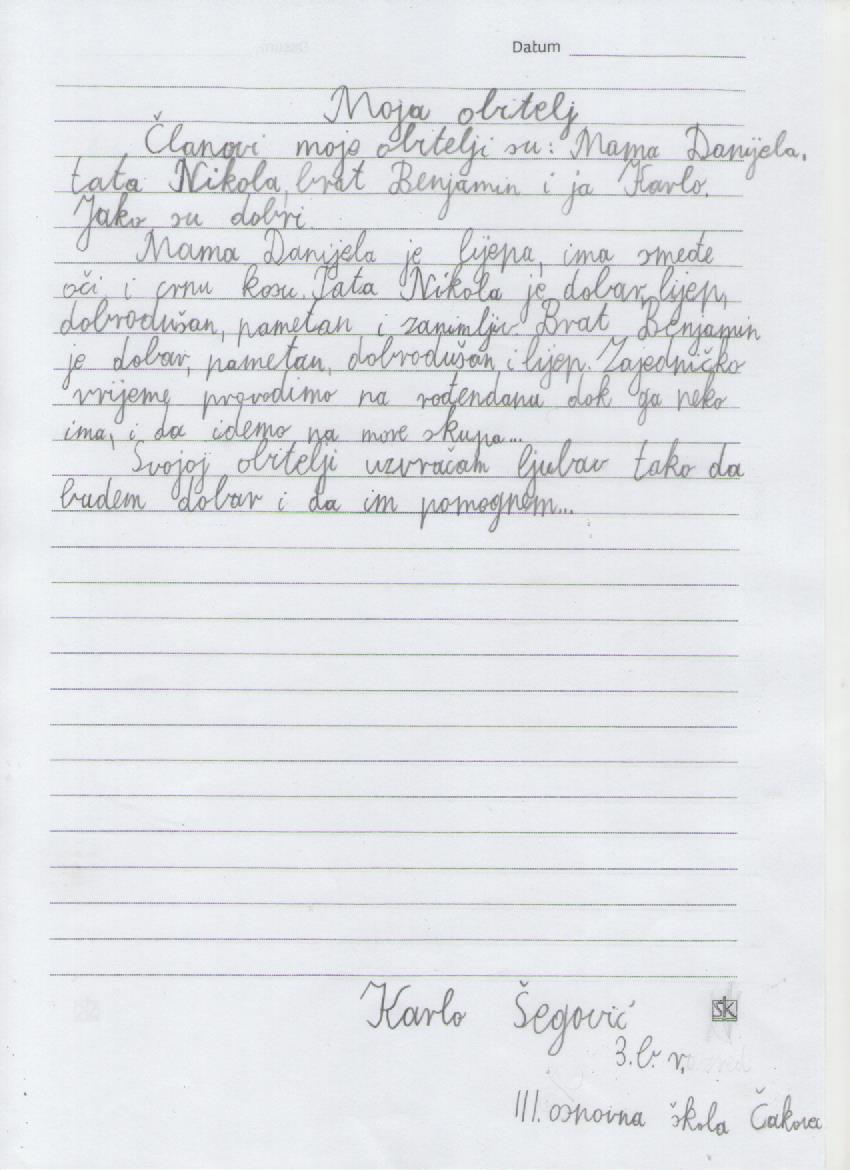 Datum
Moja obitelj
Članovi moje obitelji su: Mama Danijela,
tata Nikola, brat Benjamin i ja Karlo.
Jako su dobri.
Mama Danijela je lijepa, ima smeđe
oči i crnu kosu. Tata Nikola je dobar, lijep,
dobrodušan, pametan i zanimljiv. Brat Benjamin
je dobar, pametan, dobrodušan, i lijep. Zajedničko
vrijeme provodimo na rođendanu dok ga neko
ima, i da idemo na more skupa...
Svojoj obitelji uzvraćam ljubav tako da
budem dobar i da im pomognem...
Karlo Šegović
ŠK
3. b. r.
III. osnovna škola Čakovec